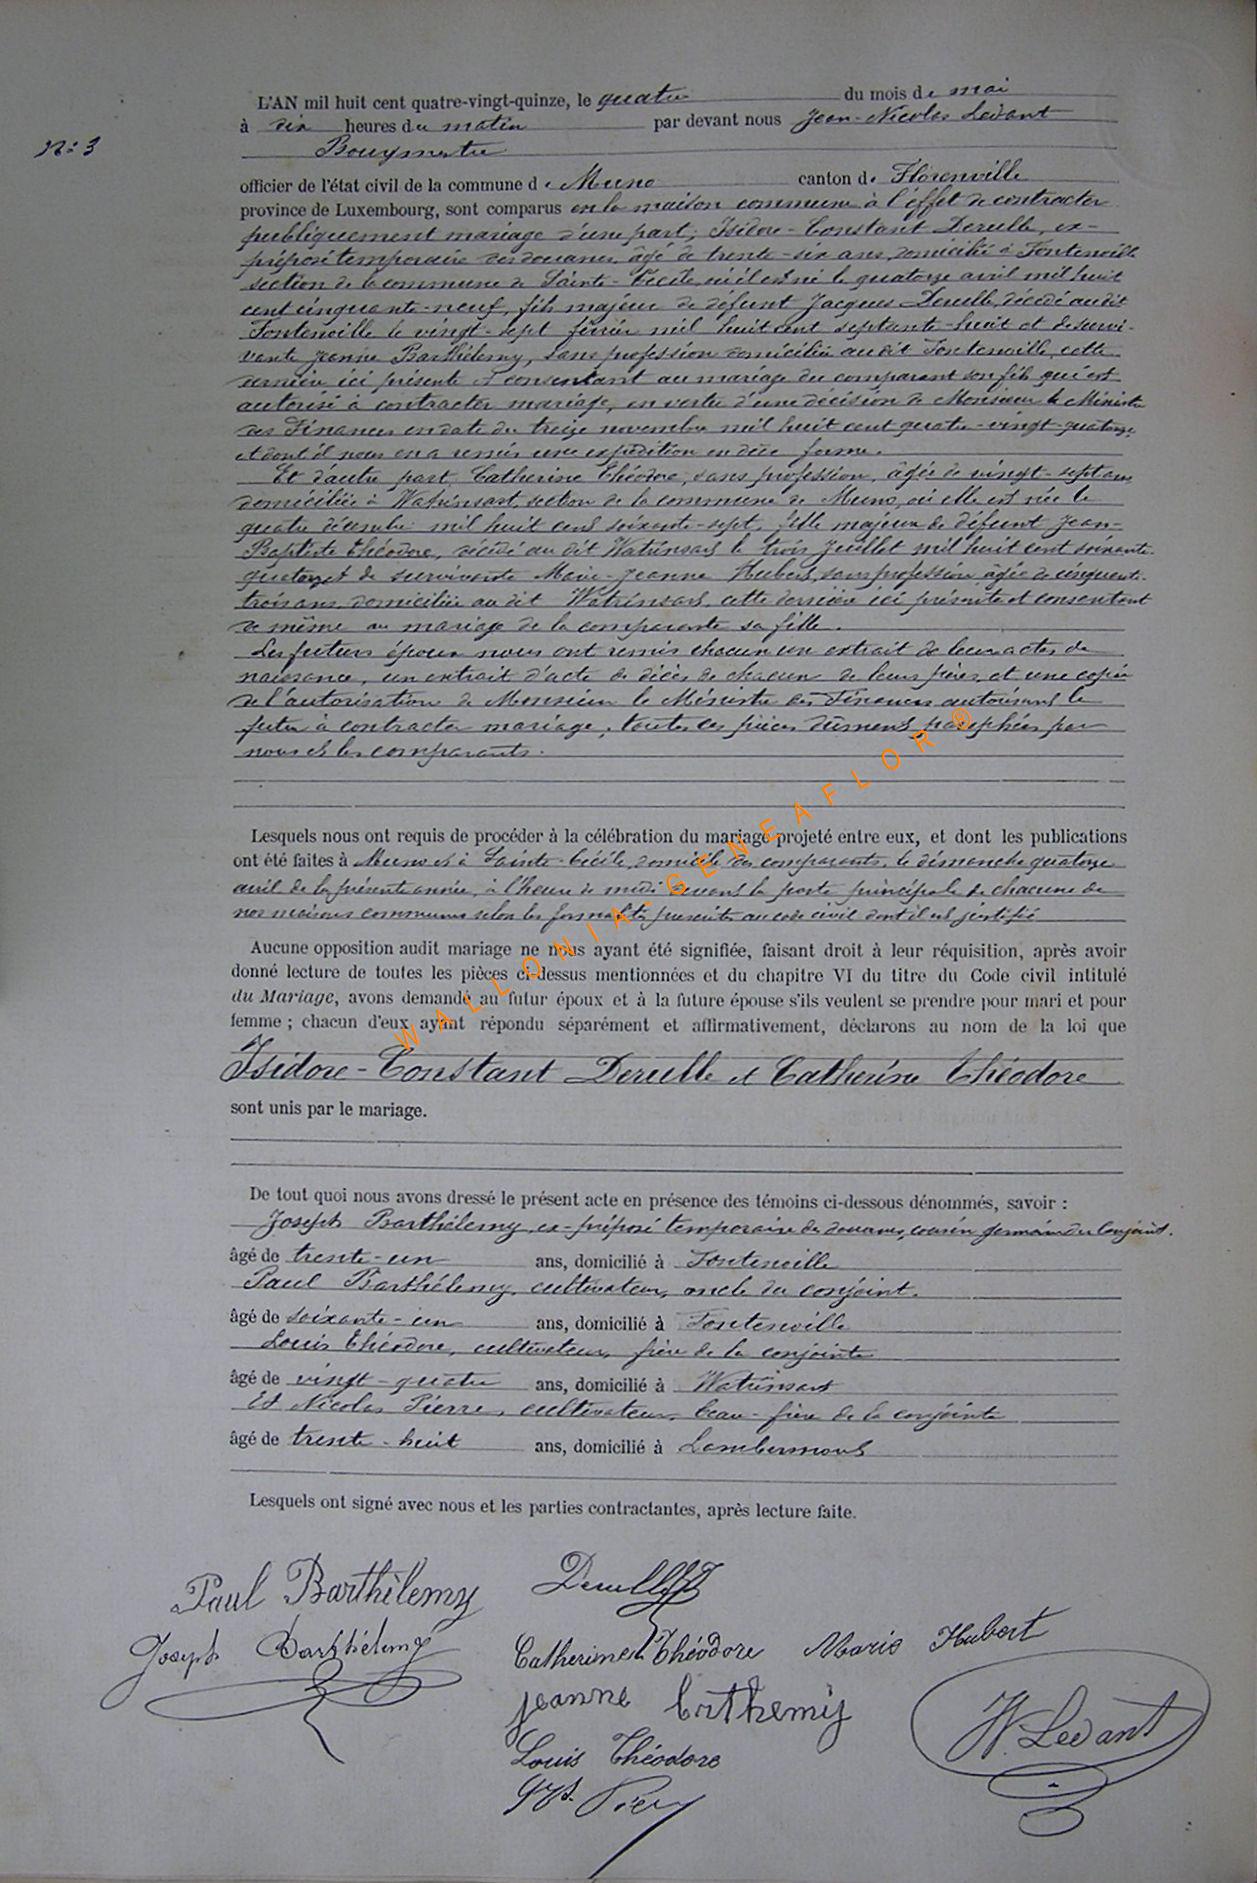 L'AN mil huit cent quatre-vingt-quinze, le quatre du mois de mai
à dix heures du matin par devant nous Jean-Nicolas Ledant
N° 3
Bourgmestre
officier de l'état civil de la commune de Muno canton de Florenville
province de Luxembourg, sont comparus en la maison commune à l'effet de contracter
publiquement mariage d'une part, Isidore-Constant Derulle, ex-
préposé temporaire des douanes, âgé de trente-six ans, domicilié à Fontenoille
section de la commune de Sainte-Cécile, où il est né le quatorze avril mil huit
cent cinquante-neuf, fils majeur de défunt Jacques Derulle, décédé au dit
Fontenoille le vingt-sept février mil huit cent septante-huit et de survi-
vante Jeanne Barthélemy, sans profession domiciliée au dit Fontenoille, cette
dernière ici présente et consentant au mariage du comparant son fils qui est
autorisé à contracter mariage, en vertu d'une décision de Monsieur le Ministre
des Finances en date du treize novembre mil huit cent quatre-vingt-quatorze
et dont il nous en a remis une expédition en due forme.
Et d'autre part, Catherine Théodore, sans profession, âgée de vingt-sept ans,
domiciliée à Watrinsart, section de la commune de Muno, où elle est née le
quatre décembre mil huit cent soixante-sept, fille majeure de défunt Jean-
Baptiste Théodore, décédé au dit Watrinsart le trois juillet mil huit cent soixante-
quatorze et de survivante Marie-Jeanne Hubert, sans profession âgée de cinquante-
trois ans, domiciliée au dit Watrinsart, cette dernière ici présente et consentant
de même au mariage de la comparante sa fille.
Les futurs époux nous ont remis chacun un extrait de leur actes de
naissance, un extrait d'acte de décès de chacun de leurs pères, et une copie
de l'autorisation de Monsieur le Ministre des Finances autorisant le
futur à contracter mariage, toutes ces pièces dûment paraphées par
nous et les comparants.
Lesquels nous ont requis de procéder à la célébration du mariage projeté entre eux, et dont les publications
ont été faites à Muno et à Sainte-Cécile, domicile des comparants, le dimanche quatorze
avril de la présente année, à l'heure de midi devant la porte principale de chacune de
nos maisons communes selon les formalités prescrites au code civil dont il est justifié
Aucune opposition audit mariage ne nous ayant été signifiée, faisant droit à leur réquisition, après avoir
donné lecture de toutes les pièces ci-dessus mentionnées et du chapitre VI du titre du Code civil intitulé
du Mariage, avons demandé au futur époux et à la future épouse s'ils veulent se prendre pour mari et pour
femme ; chacun d'eux ayant répondu séparément et affirmativement, déclarons au nom de la loi que
Isidore-Constant Derulle et Catherine Théodore
sont unis par le mariage.
De tout quoi nous avons dressé le présent acte en présence des témoins ci-dessous dénommés, savoir :
Joseph Barthélemy, ex-préposé temporaire des douanes, cousin germain du conjoint.
âgé de trente-un ans, domicilié à Fontenoille
Paul Barthélemy, cultivateur, oncle du conjoint.
âgé de soixante-un ans, domicilié à Fontenoille
Louis Théodore, cultivateur, frère de la conjointe
âgé de vingt-quatre ans, domicilié à Watrinsart
Et Nicolas Pierre, cultivateur, beau-frère de la conjointe
âgé de trente-huit ans, domicilié à Lambermont
Lesquels ont signé avec nous et les parties contractantes, après lecture faite.
Paul Barthélemy Derulle
Joseph Barthélemy Catherine Théodore Marie Hubert
Jeanne Bathemy
Louis Théodore N. Ledant
WALLONIA-GENEAFLOR ®